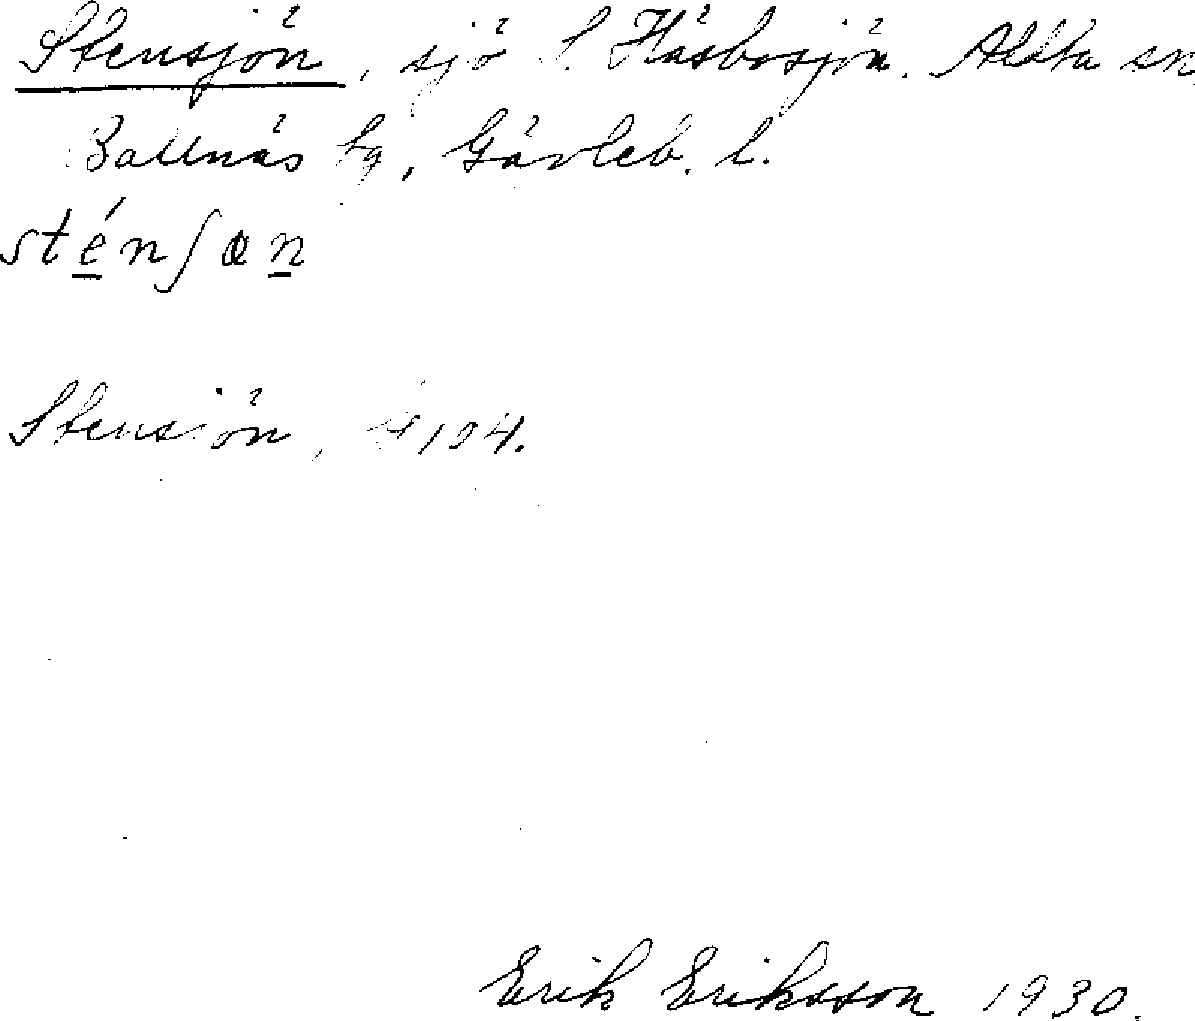 Stensjön, sjö S. Häsbosjön. Alfta sn,
Bollnäs tg, Gävleb. l.
sténʃøn
Stensjön, 4104.
Erik Eriksson 1930.